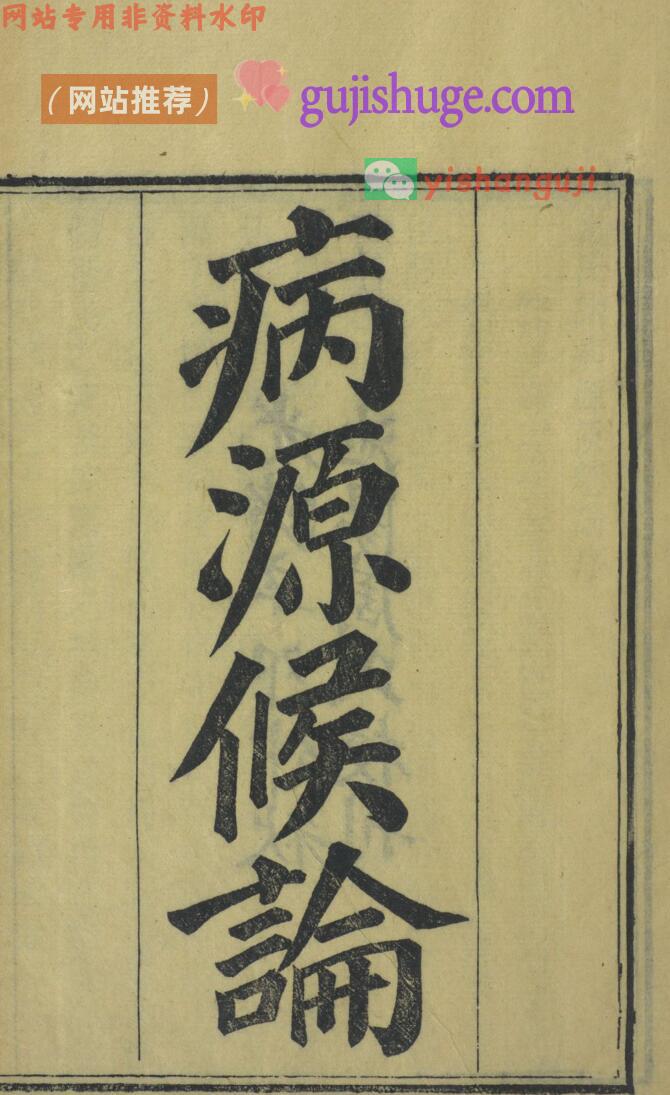 网站专用非资料水印
（网站推荐）
gujishuge.com
yishanguji
病源候論